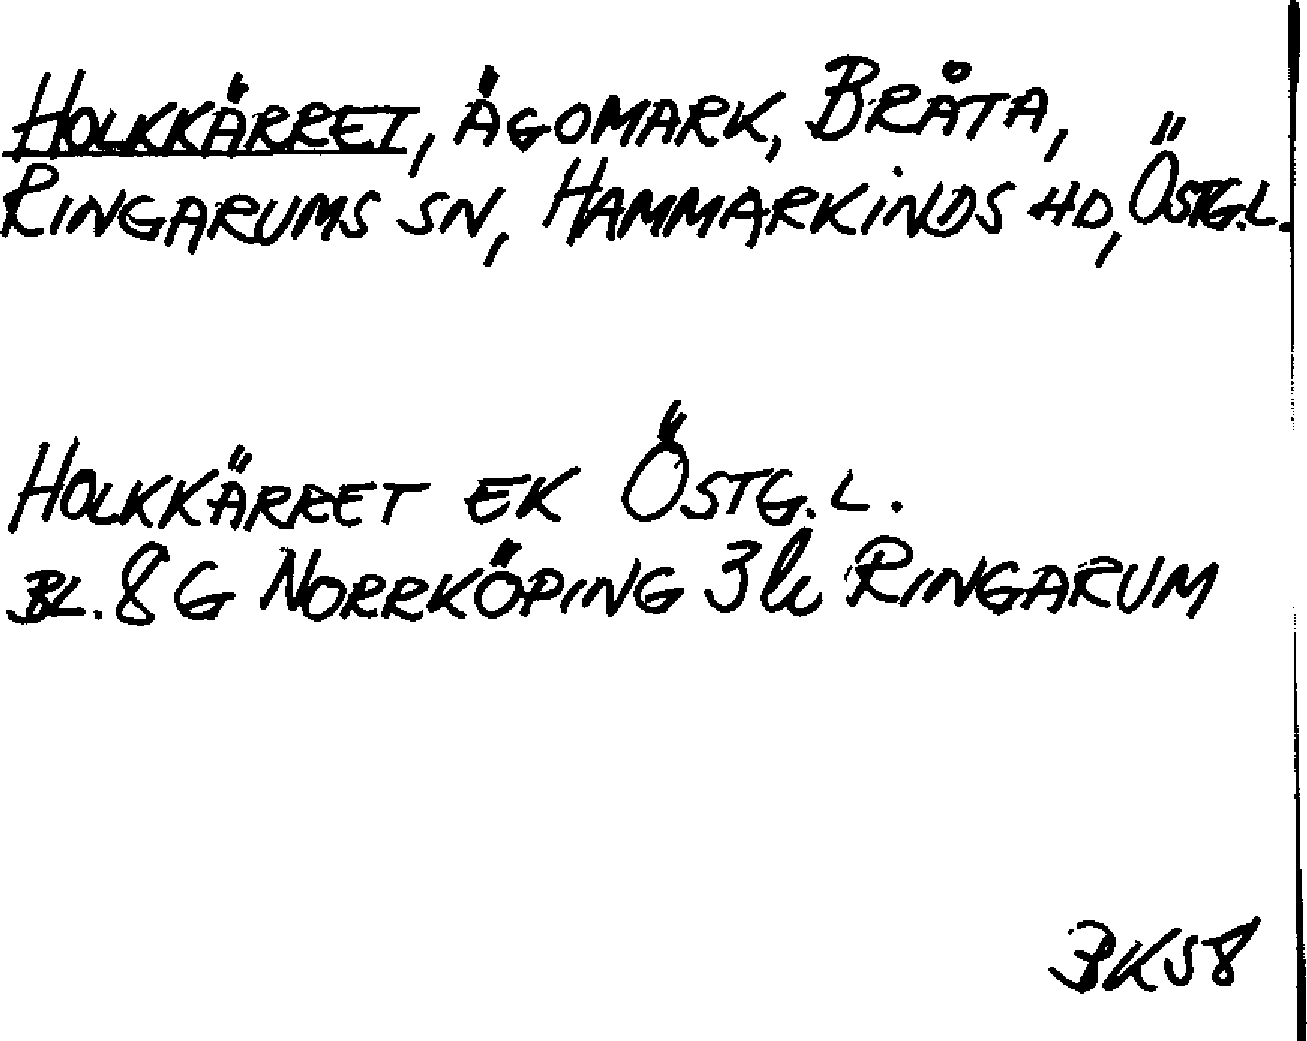 HOLKKÄRRET, ÄGOMARK, BRÅTA,
RINGARUMS SN, HAMMARKINDS HD, ÖSTG.L.
HOLKKÄRRET EK ÖSTG.L.
BL. 8 G NORRKÖPING 3 h RINGARUM